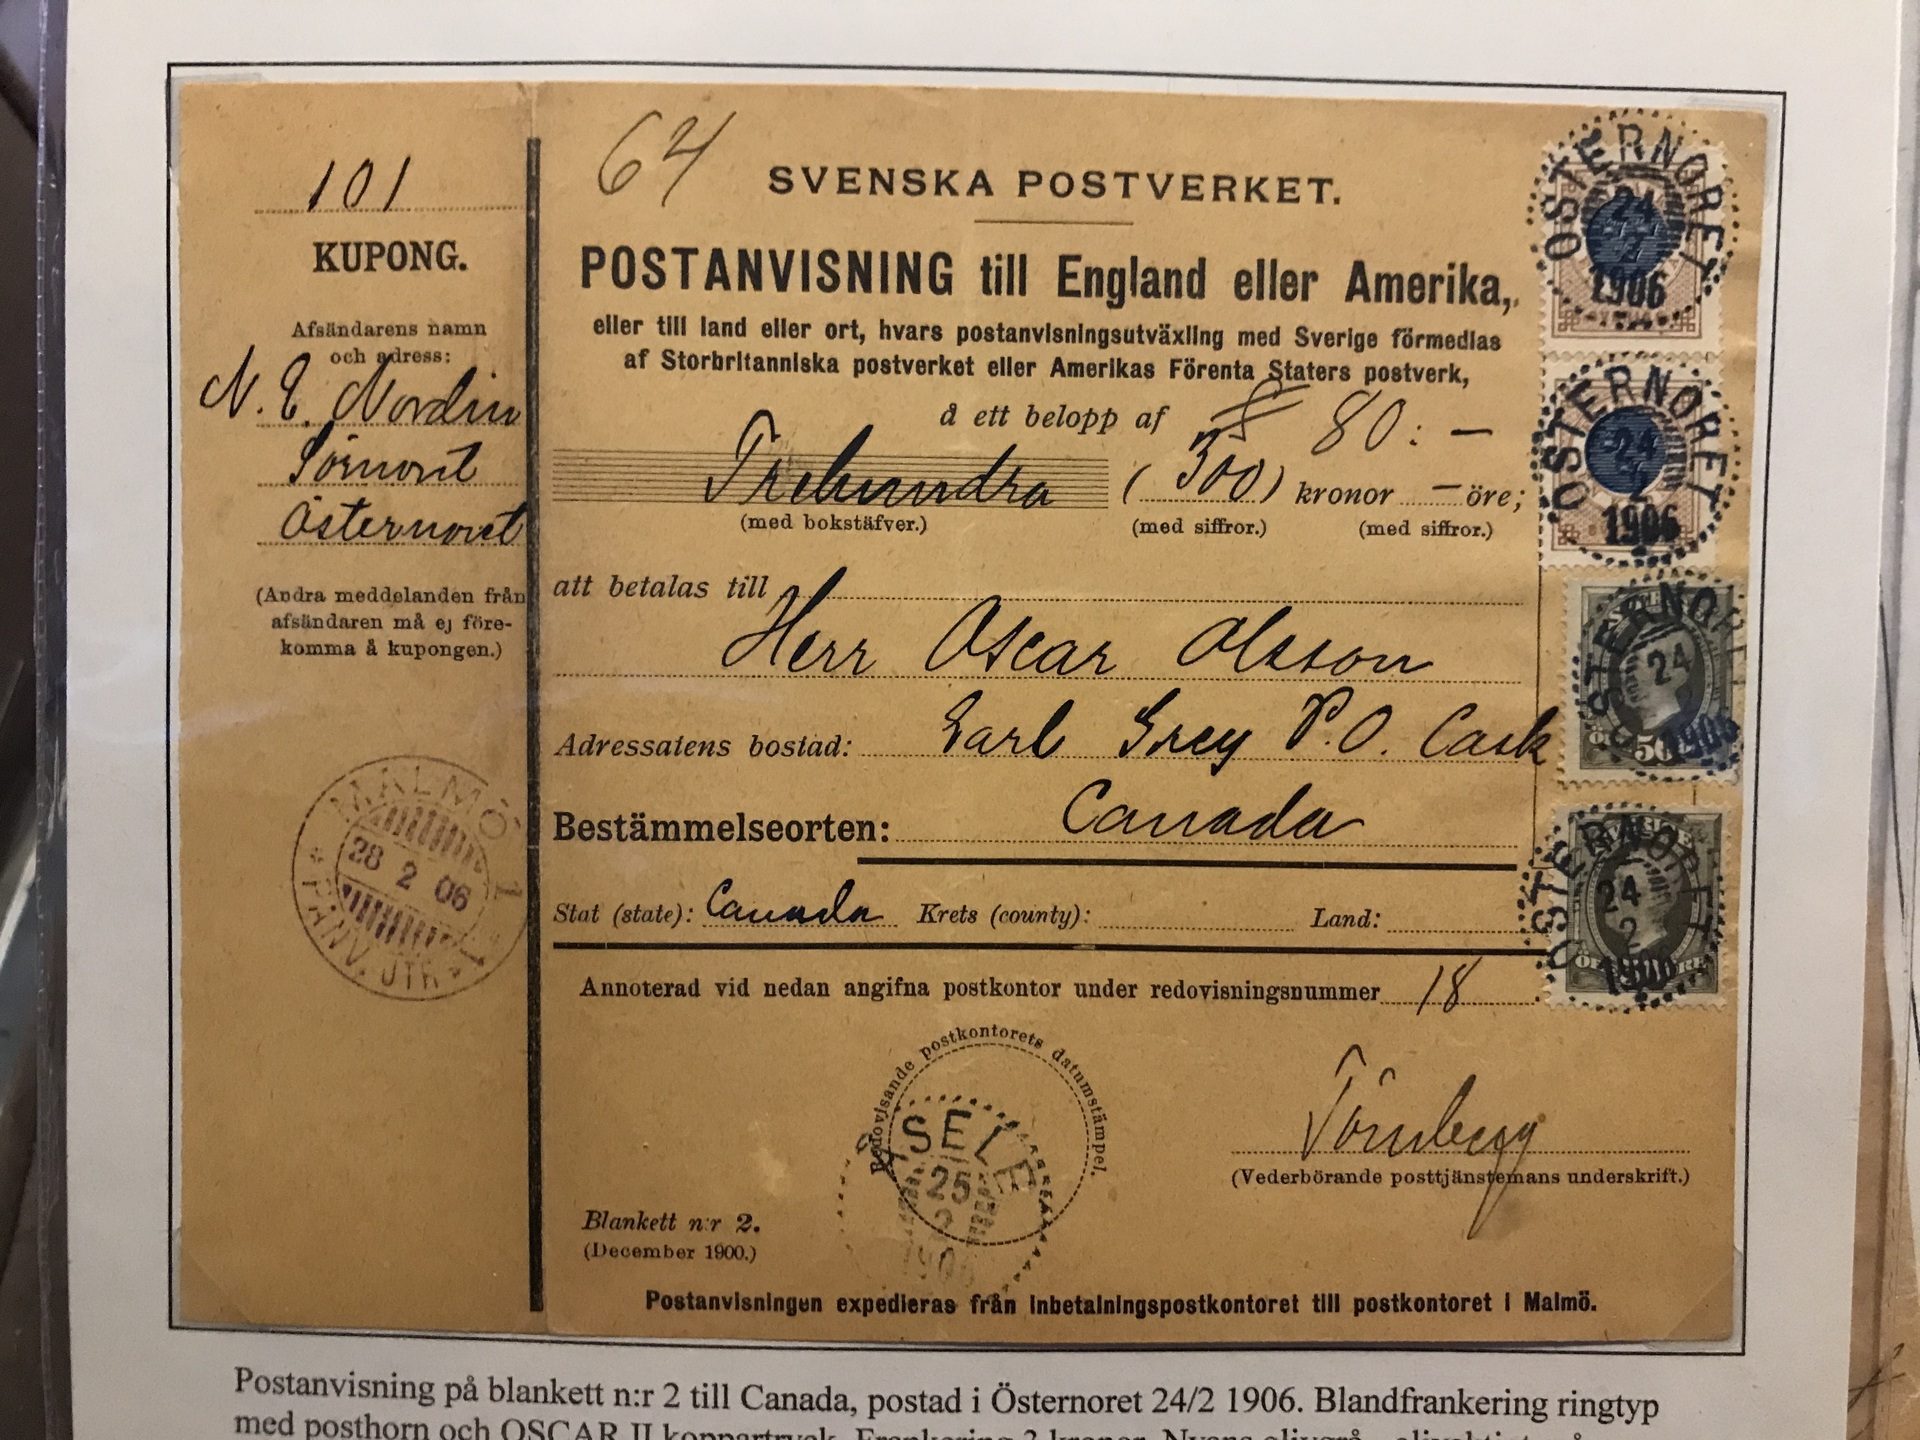 101
KUPONG.
Afsändarens namn
och adress:
N. E. Nordin
Sörnoret
Östernoret
(Andra meddelanden från
afsändaren må ej före-
komma å kupongen.)
MALMÖ 1
28 2 06
P.ANV. UTR.
64
SVENSKA POSTVERKET.
POSTANVISNING till England eller Amerika,
eller till land eller ort, hvars postanvisningsutväxling med Sverige förmedlas
af Storbritanniska postverket eller Amerikas Förenta Staters postverk,
å ett belopp af 80: —
Trehundra (300) kronor — öre;
(med bokstäfver.) (med siffror.) (med siffror.)
att betalas till
Herr Oscar Olsson
Adressatens bostad: Earl Grey P.O.
Bestämmelseorten: Canada
Stat (state): Canada Krets (county): Land:
Annoterad vid nedan angifna postkontor under redovisningsnummer 18
Redovisande postkontorets datumstämpel.
ÅSELE
25
2
1906
Törnberg
(Vederbörande posttjänstemans underskrift.)
Blankett n:r 2.
(December 1900.)
Postanvisningen expedieras från inbetalningspostkontoret till postkontoret i Malmö.
ÖSTERNORET
24
2
1906
ÖSTERNORET
24
2
1906
ÖSTERNORET
24
1906
50
ÖSTERNORET
24
2
1906
Postanvisning på blankett n:r 2 till Canada, postad i Östernoret 24/2 1906. Blandfrankering ringtyp
med posthorn och OSCAR II koppartryck. Frankering 3 kronor.